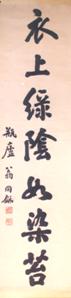 衣上綠陰如染苔
瓶廬翁同龢